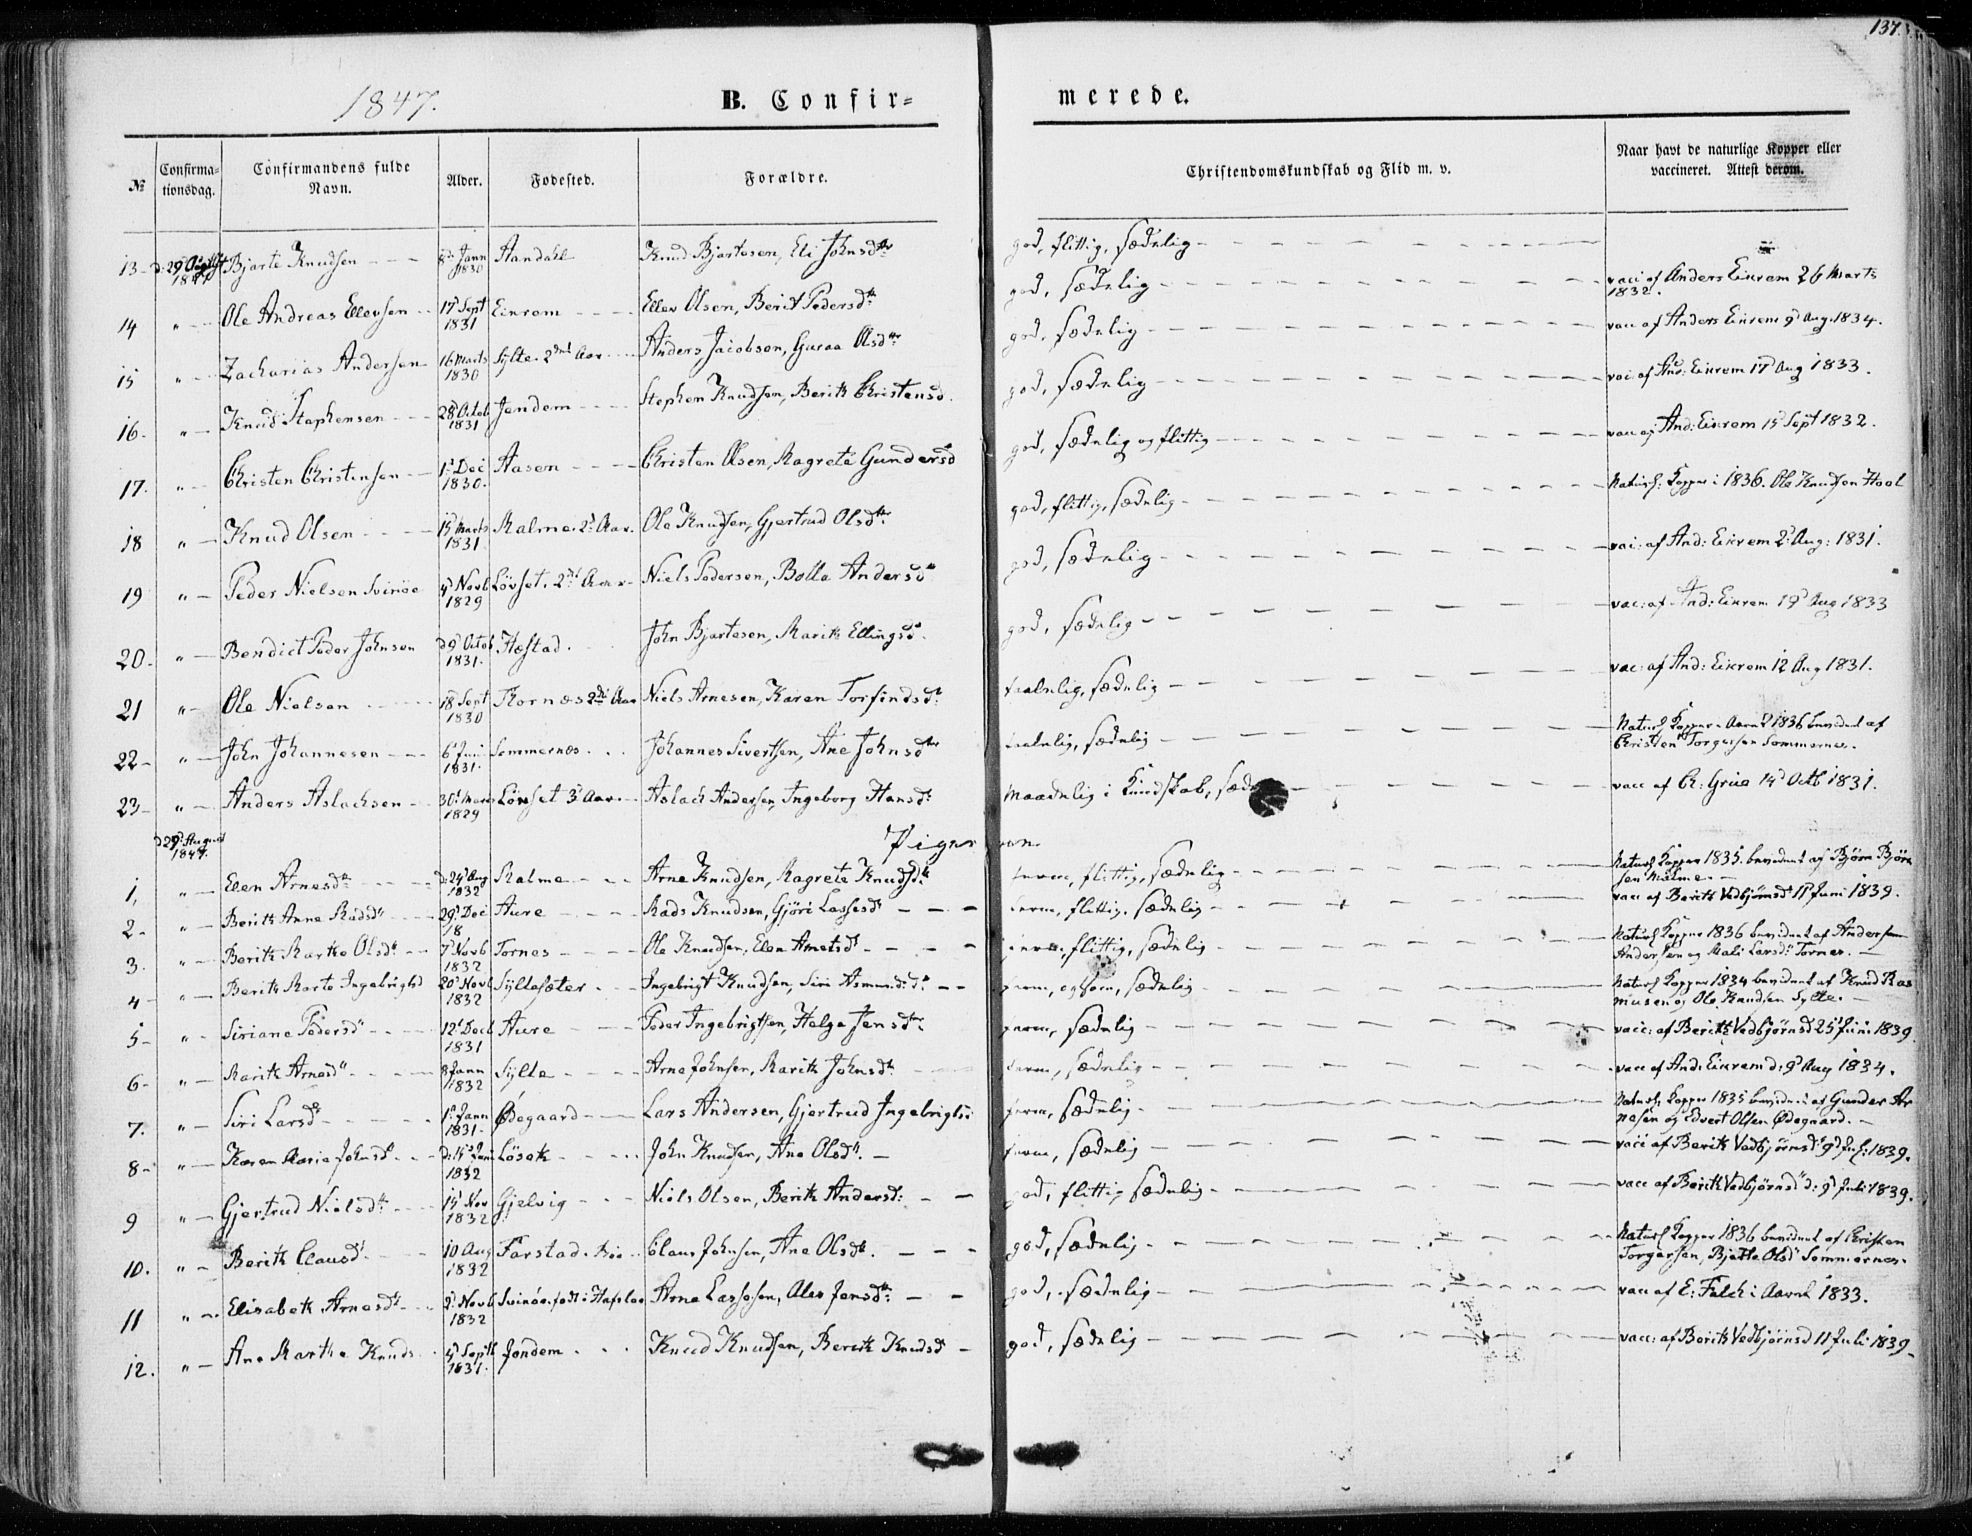 137.
1847.
B. Confir=
merede.
№
Confirma-
tionsdag.
Confirmandens fulde
Navn.
Alder.
Fødested.
Forældre.
Christendomskundskab og Flid m. v.
Naar havt de naturlige Kopper eller
vaccineret. Attest derom.
13 d. 29 August 1847 Bjarte Knudsen 8de Jann 1830 Aandahl Knud Bjartesen, Eli Johnsdtr god, flittig, sædelig
14 " Ole Andreas Ellevsen 17d Sept 1831 Eikrem Ellev Olsen, Berit Pedersdtr god, sædelig vacc af Anders Eikrem 26 Marts 1832.
15 " Zacharias Andersen 16 Marts 1830 Sylte. 2det Aar Anders Jacobsen, Guraa Olsdtr god, sædelig vacc af Anders Eikrem 9d Aug. 1834.
16. " Knud Stephensen 28d Octob 1831 Jendem Stephen Knudsen, Berith Christensd. god, sædelig vac: af And: Eikrem 17d Aug 1833.
17. " Christen Christensen 1d Dec 1830. Aasen Christen Olsen, Magrete Gundersd god, sædelig og flittig vacc af And: Eikrem 15d Sept 1832.
18 " Knud Olsen 15d Marts 1831 Malme. 2d Aar. Ole Knudsen, Gjertrud Olsdtr. god, flittig, sædelig Naturl: Kopper i 1836. Ole Knudsen Hool
19 " Peder Nielsen Svinøe 4d Novb 1829 Løvset. 2det Aar Niels Pedersen, Bolla Andersdtr god, sædelig vac: af And: Eikrem 2d Aug: 1831.
20. " Bendict Peder Johnsen d 9d Octob 1831. Hæstad. John Bjartesen, Marith Ellingsd. god, sædelig vac: af And: Eikrem 19d Aug 1833
21 " Ole Nielsen 18d Sept 1830 Kornæs 2det Aar Niels Arnesen, Karen Torfindsdr taalelig, sædelig vac: af And: Eikrem 12 Aug 1831.
22 " John Johannesen 6d Juni 1831. Sommernæs. Johannes Sivertsen, Ane Johnsdtr taalelig, sædelig Naturl Kopper i Aaret 1836 bevidnet af
Christen Torgersen Sommernes.
23 " Anders Aslachsen 30d Marts 1829 Løvset 3d Aar. Aslach Andersen, Ingeborg Hansdr maadelig i Kundskab, sæd vacc af Cl: Grüe 14d Octb 1831.
d 29d August 1847. Piger
1, " Elen Arnesdtr d. 24d Aug 1832 Malme Arne Knudsen, Magrete Knudsdtr flittig, sædelig Naturl Kopper 1835. bevidnet af Bjørn Bjørn
sen Malme.
2. " Berith Anne Madsdr 29d Dec 18 Aure Mads Knudsen, Gjøri Lassesdr flittig, sædelig vacc af Berith Vedbjørnsdr 11d Juni 1839.
3. " Berith Marthe Olsdtr 7d Novb 1832 Tornes Ole Knudsen, Elen Ametsdr flittig, sædelig Naturl Kopper 1836 bevidnet af Anders
Andersen og Mali Larsdr Tornes.
4 " Berith Marte Ingebrigtsd 20d Novb 1832 Syltesæter Ingebrigt Knudsen, Siri Asmundsdr sædelig Naturl Kopper 1834 bevidnet af Knud Ras
musen og Ole Knudsen Sylte.
5 " Siriane Pedersdr 12d Decb 1831 Aure Peder Ingebrigtsen, Helge Jensdtr sædelig vacc: af Berith Vedbjørnsd 25d Juni 1839.
6 " Marith Arnesdr 8 Jann 1832 Sylte Arne Johnsen, Marith Johnsdtr sædelig vacc af And. Eikrem d. 9d Aug 1834.
7. " Siri Larsdr 1d Jann 1831. Ødegaard Lars Andersen, Gjertrud Ingebrigtsd sædelig Naturl. Kopper 1835 bevidnet af Gunder Ar
nesen og Edvert Olsen Ødegaard.
8 " Karen Marie Johnsdr d. 15d 1832 Løsek John Knudsen, Ane Olsdtr. sædelig vacc af Berith Vedbjørnsdr 9d Juli 1839.
9 " Gjertrud Nielsdtr 15d Nov 1832 Gjelvig Niels Olsen, Berith Andersd: god, flittig sædelig vacc af Berith Vedbjørnsdr d: 9d Juli 1839.
10. " Berith Clausdr 10 Aug 1832 Farstad. Claus Johnsen, Ane Olsdtr. god, sædelig Naturl Kopper 1836 bevidnet af Christen
Torgersen, Bjette Olsdr Sommernes.
11 " Elisabeth Arnesdr 2d Novb 1832 Svinøe. født i Arne Lassesen, Ales Jensdtr. god, sædelig vacc af E: Falch i Aaret 1833.
12. " Ane Marthe Knuds. 4d Septb 1831. Jendem Knud Knudsen, Berith Knudsd god, sædelig vacc: af Berith Vedbjørnsd 11 Juli 1839